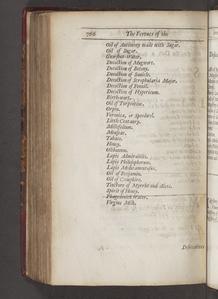 766 The Vertues of the
Oil of Antimony made with Sugar.
Oil of Sugar.
Gunshot-Water.
Decoction of Mugwort.
Decoction of Betony.
Decoction of Sanicle.
Decoction of Scrophularia Major.
Decoction of Fennil.
Decoction of Hypericum.
Birthwort.
Oil of Turpentine.
Orpin.
Veronica, or Speedwel.
Little Centaury.
Millefolium.
Mhupar.
Tabaco.
Honey.
Olibanum.
Lapis Admirabilis.
Lapis Philosophorum.
Lapis Medicamentosus.
Oil of Benjamin.
Oil of Camphire.
Tincture of Myrrhe and Aloes.
Spirit of Honey.
Phagedenick Water.
Virgins Milk.